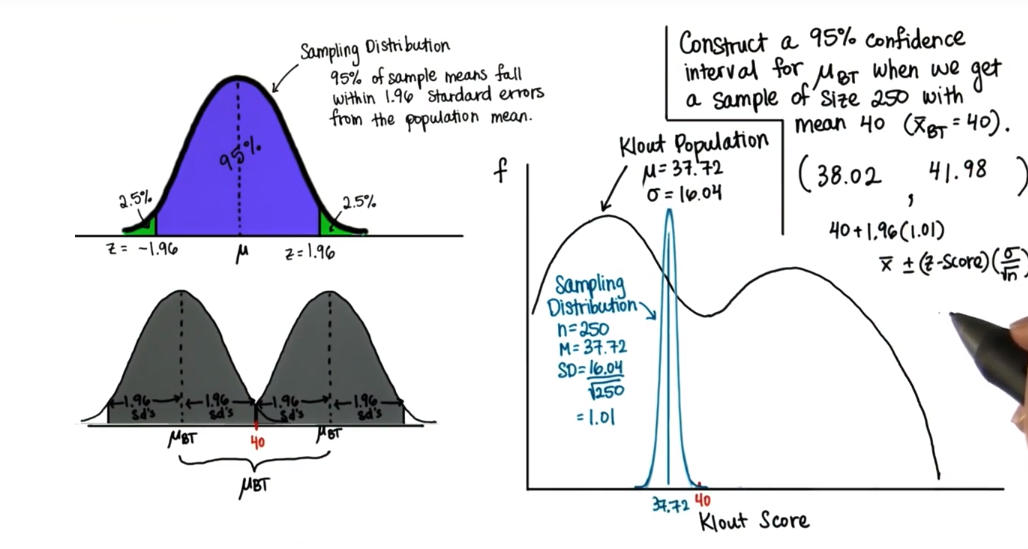 Sampling Distribution
95% of sample means fall
within 1.96 standard errors
from the population mean.
95%
2.5%
2.5%
z = -1.96
μ
z = 1.96
1.96
sd's
1.96
sd's
1.96
sd's
1.96
sd's
μBT
40
μBT
μBT
Construct a 95% confidence
interval for μBT when we get
a sample of size 250 with
mean 40 (x̄BT = 40).
(38.02 , 41.98)
40+1.96(1.01)
x̄ ± (z-score)(σ/√n)
f
Klout Population
μ = 37.72
σ = 16.04
Sampling
Distribution
n = 250
M = 37.72
SD = 16.04/√250
= 1.01
37.72 40
Klout Score